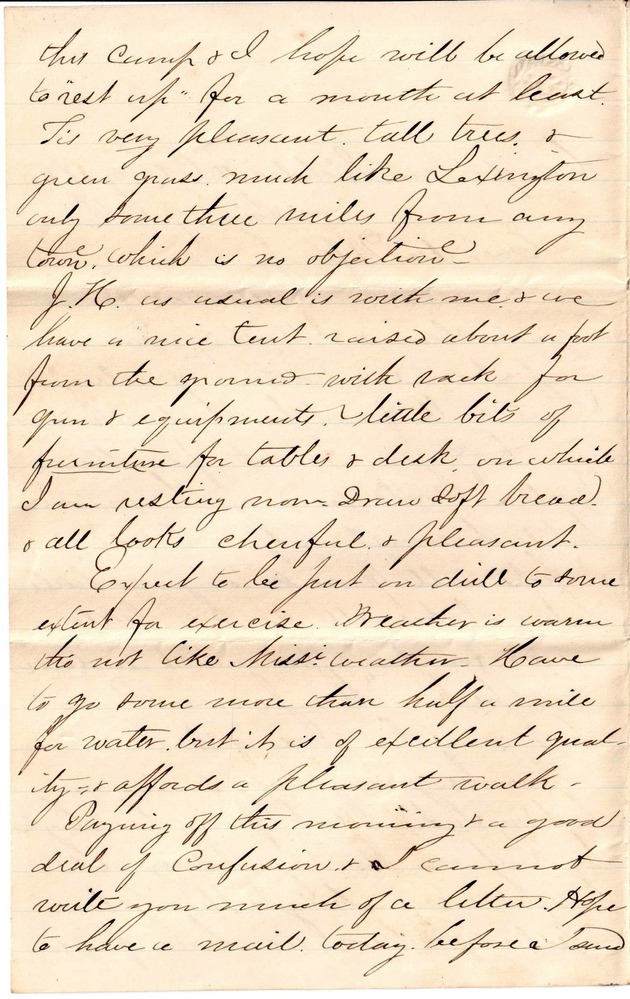 this camp & I hope will be allowed
to "rest up" for a month at least.
Tis very pleasant. tall trees. &
green grass. much like Lexington
only some three miles from any
town. which is no objection -
J. H. as usual is with me. & we
have a nice tent. raised about a foot
from the ground. with rack for
gun & equipments. little bits of
furniture for tables & desk, on which
I am resting now - Draw soft bread.
& all looks cheerful. & pleasant.
Expect to be put on drill to some
extent for exercise. Weather is warm
tho not like Missi. weather - Have
to go some more than half a mile
for water. but it is of excellent qual-
ity - & affords a pleasant walk -
Paying off this morning & a good
deal of Confusion. & I cannot
write you much of a letter. Hope
to have a mail. today. before I send